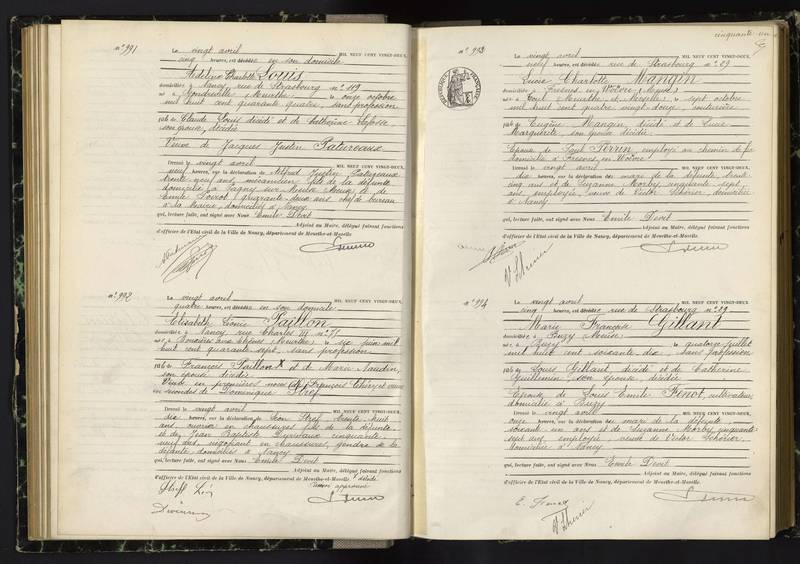 n° 991
Le vingt avril MIL NEUF CENT VINGT-DEUX,
cinq heures, est décédée en son domicile
Adeline Charlotte Louis
domiciliée à Nancy rue de Strasbourg n° 119
née à (Meurthe) le onze octobre
mil huit cent quarante quatre, sans profession
fille de Claude Louis décédé et de Catherine
son épouse, décédée
Veuve de Jacques Justin Patureaux
Dressé le vingt avril MIL NEUF CENT VINGT-DEUX,
neuf heures, sur la déclaration de Alfred Justin Patureaux
trente neuf ans, mécanicien fils de la défunte
domicilié à Pagny sur Meuse Meuse et de
Emile Poirot quarante deux ans chef de bureau
à la Mairie, domiciliés à Nancy
qui, lecture faite, ont signé avec Nous Emile Devit
Adjoint au Maire, délégué faisant fonctions
d'officier de l'Etat civil de la Ville de Nancy, département de Meurthe-et-Moselle
n° 992
Le vingt avril MIL NEUF CENT VINGT-DEUX,
quatre heures, est décédée en son domicile
Elisabeth Léonie Paillon
domiciliée à Nancy rue Charles III n° 71
née à Rosières aux Salines (Meurthe) le six juin mil
huit cent quarante sept, sans profession
fille de François Paillon et de Marie Naudin,
son épouse décédés
Veuve en premières noces de François Thiery et veuve
en secondes de Dominique Streff
Dressé le vingt avril MIL NEUF CENT VINGT-DEUX,
dix heures, sur la déclaration de Léon Streff trente huit
ans, ouvrier en chaussures fils de la défunte
et de Jean Baptiste cinquante
neuf ans négociant en chaussures, gendre de la
défunte, domiciliés à Nancy
qui, lecture faite, ont signé avec Nous Emile Devit
Adjoint au Maire, délégué faisant fonctions
d'officier de l'Etat civil de la Ville de Nancy, département de Meurthe-et-Moselle
Streff Léon
cinquante un
n° 993
Le vingt avril MIL NEUF CENT VINGT-DEUX,
neuf heures, est décédée rue de Strasbourg n° 29
Lucie Charlotte Mangin
domiciliée à Fresnes en Woëvre (Meuse)
née à Toul (Meurthe et Moselle) le sept octobre
mil huit cent quatre vingt douze, couturière
fille de Eugène Mangin, décédé et de Lucie
Marguerite, son épouse décédée
Epouse de Paul Perrin, employé au chemin de fer
domicilié à Fresnes en Woëvre
Dressé le vingt avril MIL NEUF CENT VINGT-DEUX,
dix heures, sur la déclaration du mari de la défunte, trente
cinq ans et de Suzanne Morby, cinquante sept
ans, employée, veuve de Victor Schérier, domiciliée
à Nancy
qui, lecture faite, ont signé avec Nous Emile Devit
Adjoint au Maire, délégué faisant fonctions
d'officier de l'Etat civil de la Ville de Nancy, département de Meurthe-et-Moselle
n° 994
Le vingt avril MIL NEUF CENT VINGT-DEUX,
cinq heures, est décédée rue de Strasbourg n° 29
Marie François Gillant
domiciliée à Buzy Meuse
née à Buzy le quatorze juillet
mil huit cent soixante dix, sans profession
fille de Louis Gillant décédé et de Catherine
Guillemin, son épouse décédée
Epouse de Louis Emile Fenot, cultivateur
domicilié à Buzy
Dressé le vingt avril MIL NEUF CENT VINGT-DEUX,
onze heures, sur la déclaration du mari de la défunte,
soixante un ans et de Suzanne Morby, cinquante
sept ans, employée, veuve de Victor Schérier,
domiciliée à Nancy
qui, lecture faite, ont signé avec Nous Emile Devit
Adjoint au Maire, délégué faisant fonctions
d'officier de l'Etat civil de la Ville de Nancy, département de Meurthe-et-Moselle